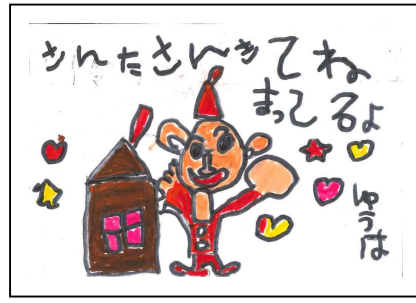 さんたさんきてね
まってるよ
ゆうは